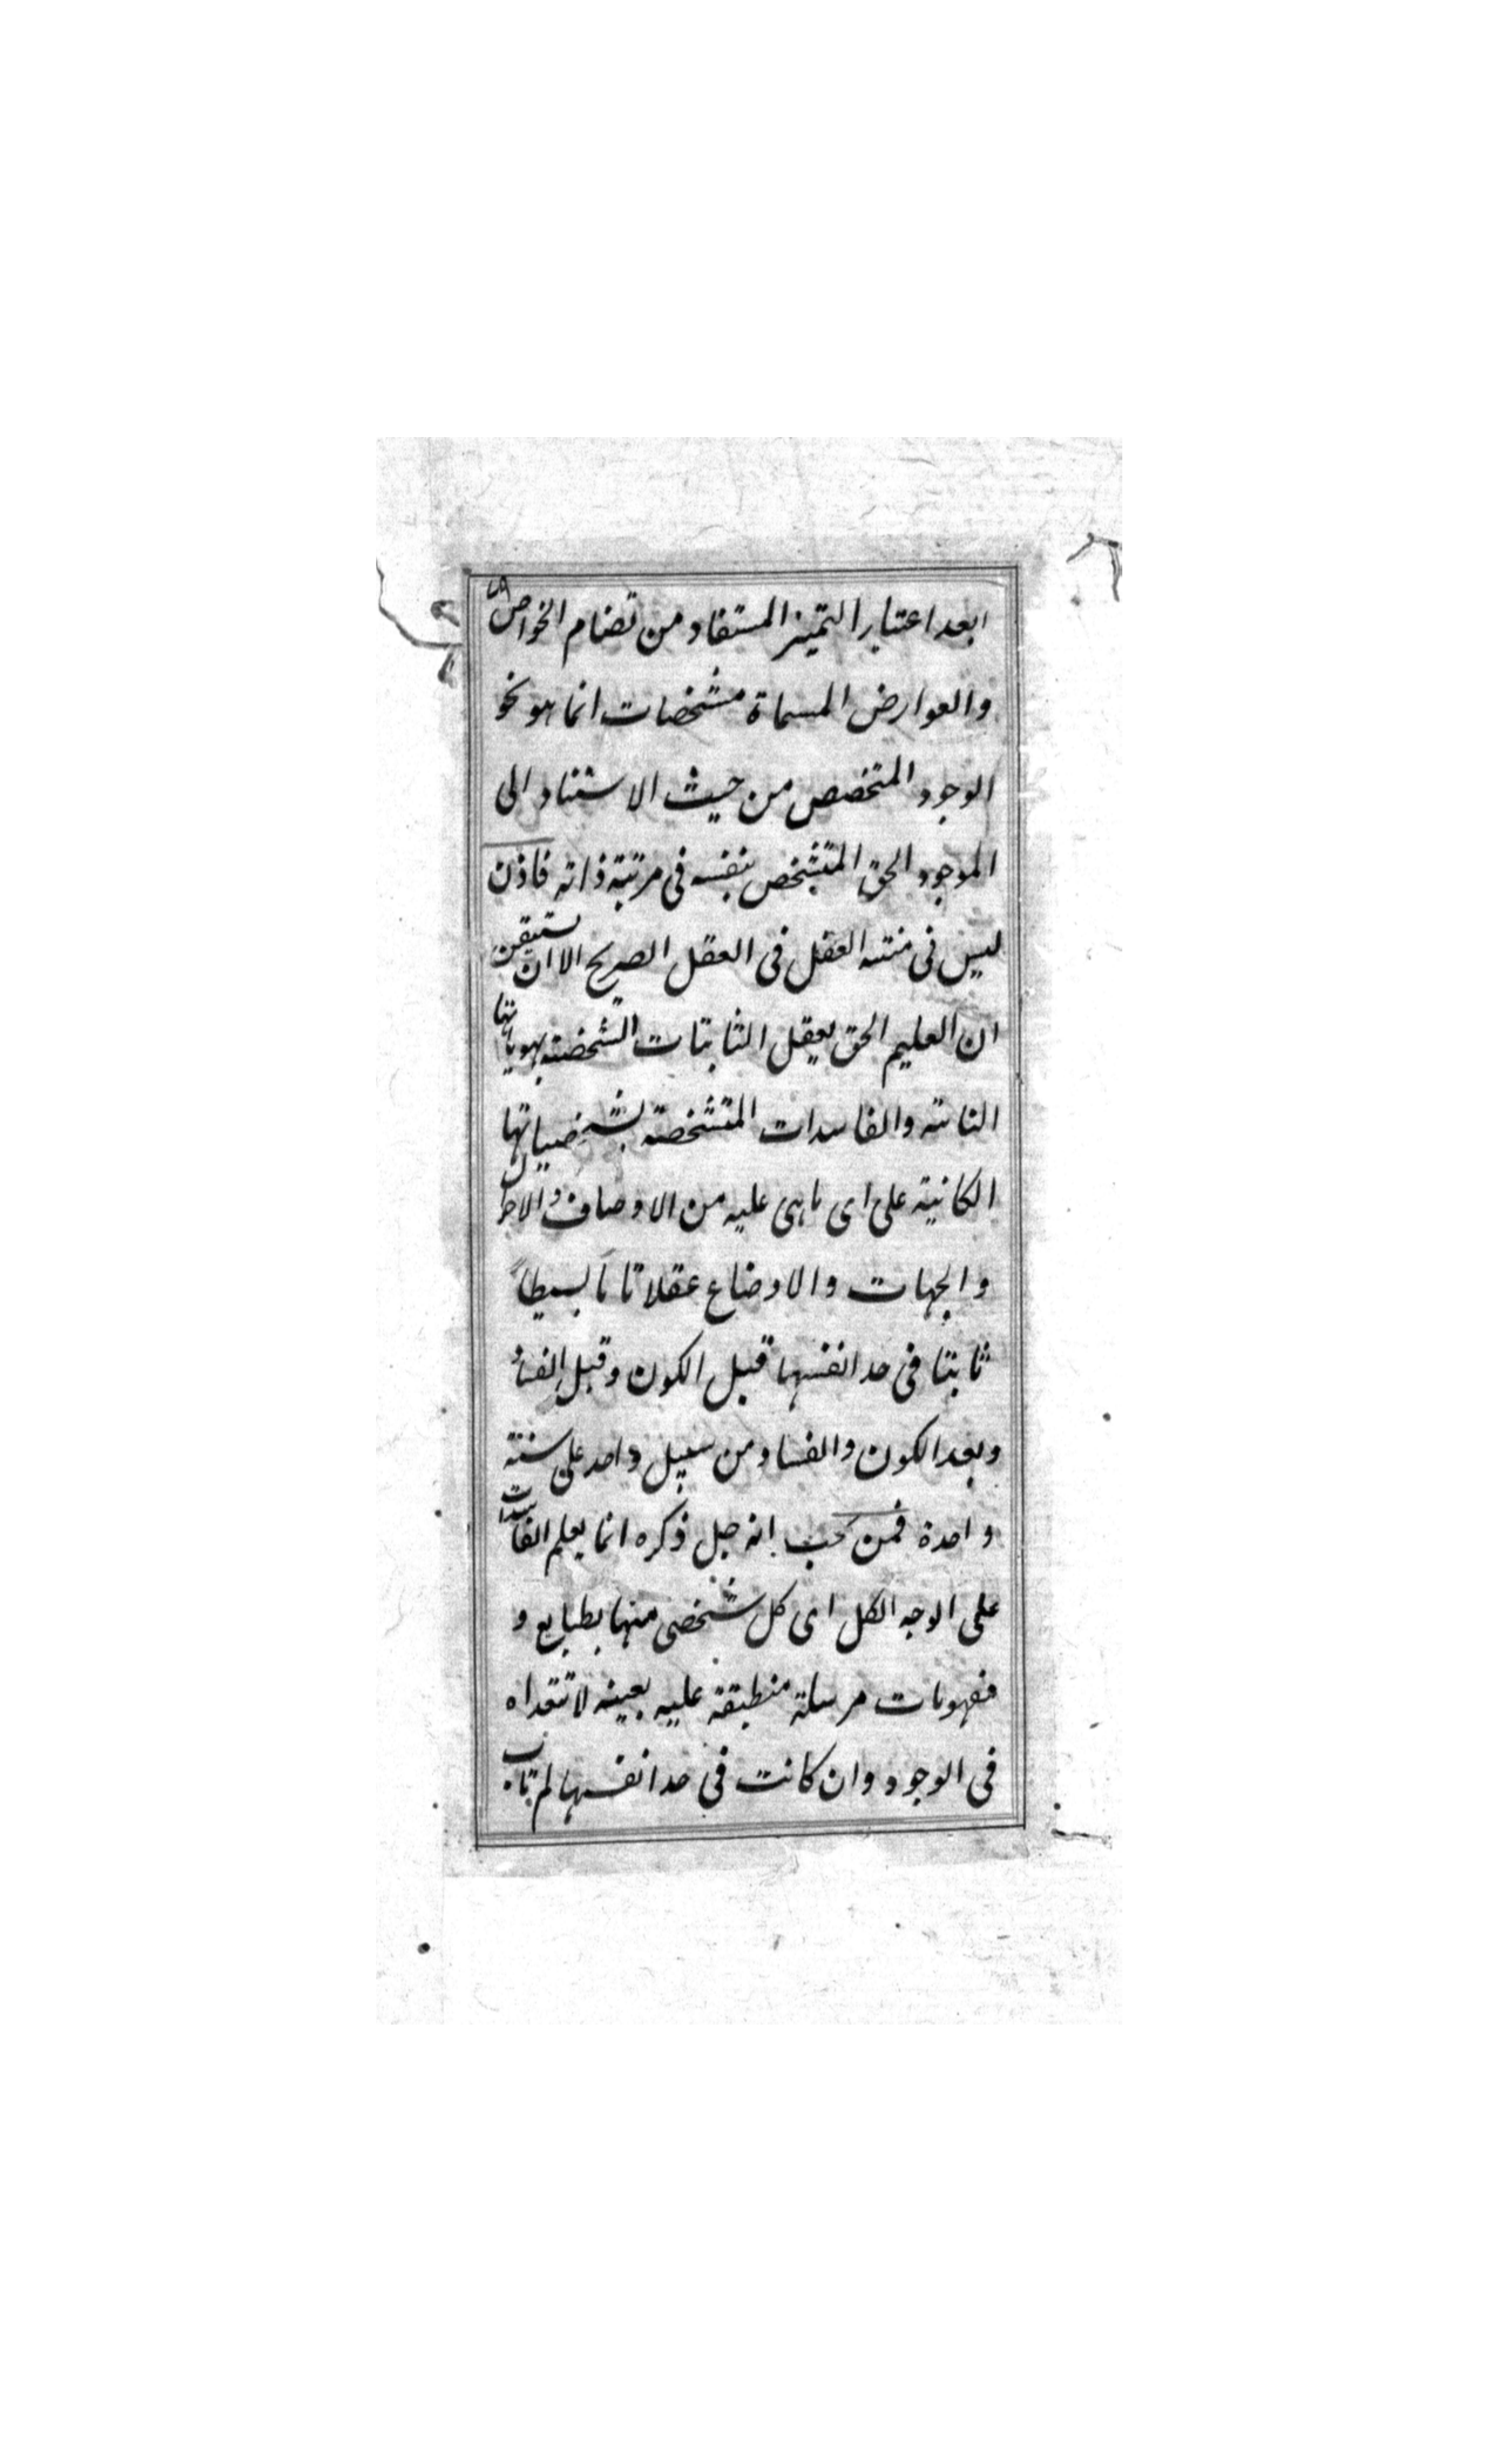 ابعد اعتبار التميز المستفاد من تضام الخواص
والعوارض المسماة مشخصات انما هو نحو
الوجود المتخصص من حيث الاستناد الى
الموجود الحق المتشخص بنفسه فى مرتبة ذاته فاذن
ليس فى منته العقل فى العقل الصريح الا ان ستيقن
ان العليم الحق يعقل الثابتات الشخصته بهوياتها
الثابته والفاسدات المتشخصة بشخصياتها
الكانية على اى ما هى عليه من الاوصاف والاحوال
والجهات والاوضاع عقلا تاما بسيطاً
ثابتا فى حد انفسها قبل الكون وقبل الفساد
وبعد الكون والفساد من سبيل واحد على سنة
واحدة فمن حسب انه جل ذكره انما يعلم الفاسدات
على الوجه الكلى اى كل شخصى منها بطبايع و
مفهومات مرسلة منطبقة عليه بعينه لا تتعداه
فى الوجود وان كانت فى حد انفسها لم تاب